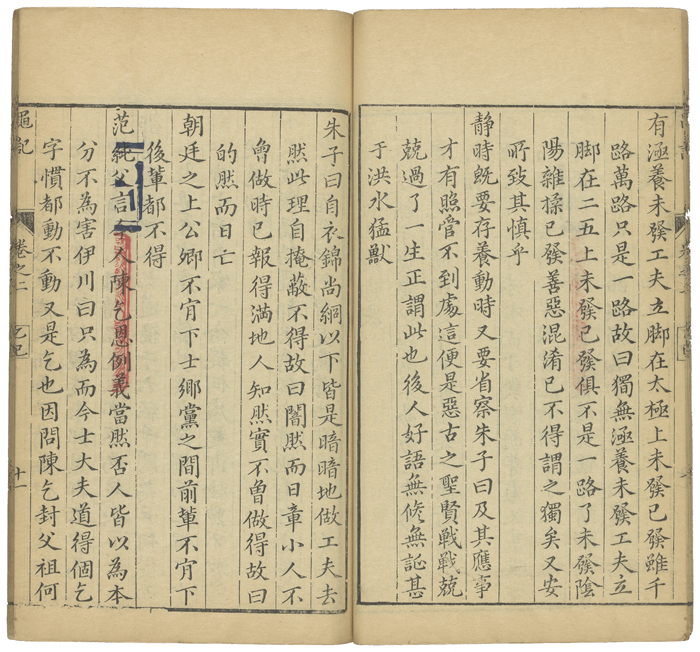 有涵養未發工夫立脚在太極上未發已發雖千
路萬路只是一路故曰獨無涵養未發工夫立
脚在二五上未發已發俱不是一路了未發陰
陽雜揉已發善惡混淆已不得謂之獨矣又安
所致其慎乎
靜時旣要存養動時又要省察朱子曰及其應事
才有照管不到處這便是惡古之聖賢戰戰兢
兢過了一生正謂此也後人好語無修無証甚
于洪水猛獸
朱子曰自衣錦尚絅以下皆是暗暗地做工夫去
然此理自掩蔽不得故曰闇然而日章小人不
曾做時已報得滿地人知然實不曾做得故曰
的然而日亡
朝廷之上公卿不肯下士鄉黨之間前輩不肯下
後輩都不得
范純父言人陳乞恩例義當然否人皆以為本
分不為害伊川曰只為而今士大夫道得個乞
字慣都動不動又是乞也因問陳乞封父祖何
黽記 卷之二 十一